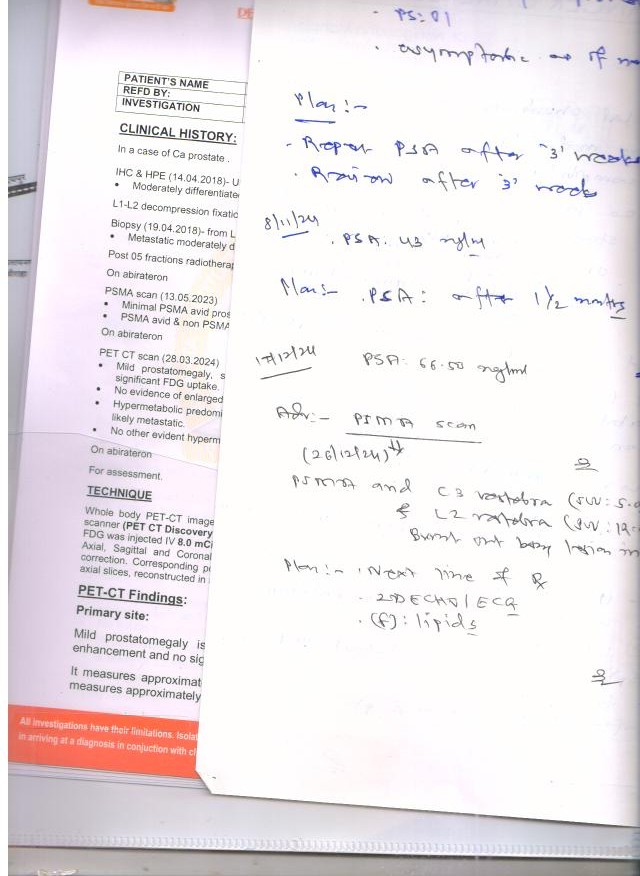 PATIENT'S NAME
REFD BY:
INVESTIGATION
CLINICAL HISTORY:
In a case of Ca prostate.
IHC & HPE (14.04.2018)- U
• Moderately differentiate
L1-L2 decompression fixatio
Biopsy (19.04.2018)- from L
• Metastatic moderately d
Post 05 fractions radiotherap
On abirateron
PSMA scan (13.05.2023)
• Minimal PSMA avid pros
• PSMA avid & non PSMA
On abirateron
PET CT scan (28.03.2024)
• Mild prostatomegaly, s
significant FDG uptake.
• No evidence of enlarged
• Hypermetabolic predomi
likely metastatic.
• No other evident hyperm
On abirateron
For assessment.
TECHNIQUE
Whole body PET-CT image
scanner (PET CT Discovery
FDG was injected IV 8.0 mCi
Axial, Sagittal and Coronal
correction. Corresponding p
axial slices, reconstructed in
PET-CT Findings:
Primary site:
Mild prostatomegaly is
enhancement and no sig
It measures approximat
measures approximately
All investigations have their limitations. Isola
in arriving at a diagnosis in conjuction with cl
• PS: 01
• asymptomatic as of
Plan :-
- Repeat PSA after '3' weeks
• Review after '3' weeks
8/11/24
• PSA. 43 ng/ml
Plan:- • PSA: after 1 1/2 months
17/12/24 PSA: 66.50 ng/ml
Adv:- PSMA scan
(26/12/24)
PSMA avid C3 vertebra (SUV: 5.
& L2 vertebra (SUV: 12
Burnt out bony lesion in
Plan:- • Next line of Rx
• 2DECHO / ECG
• (f): lipids